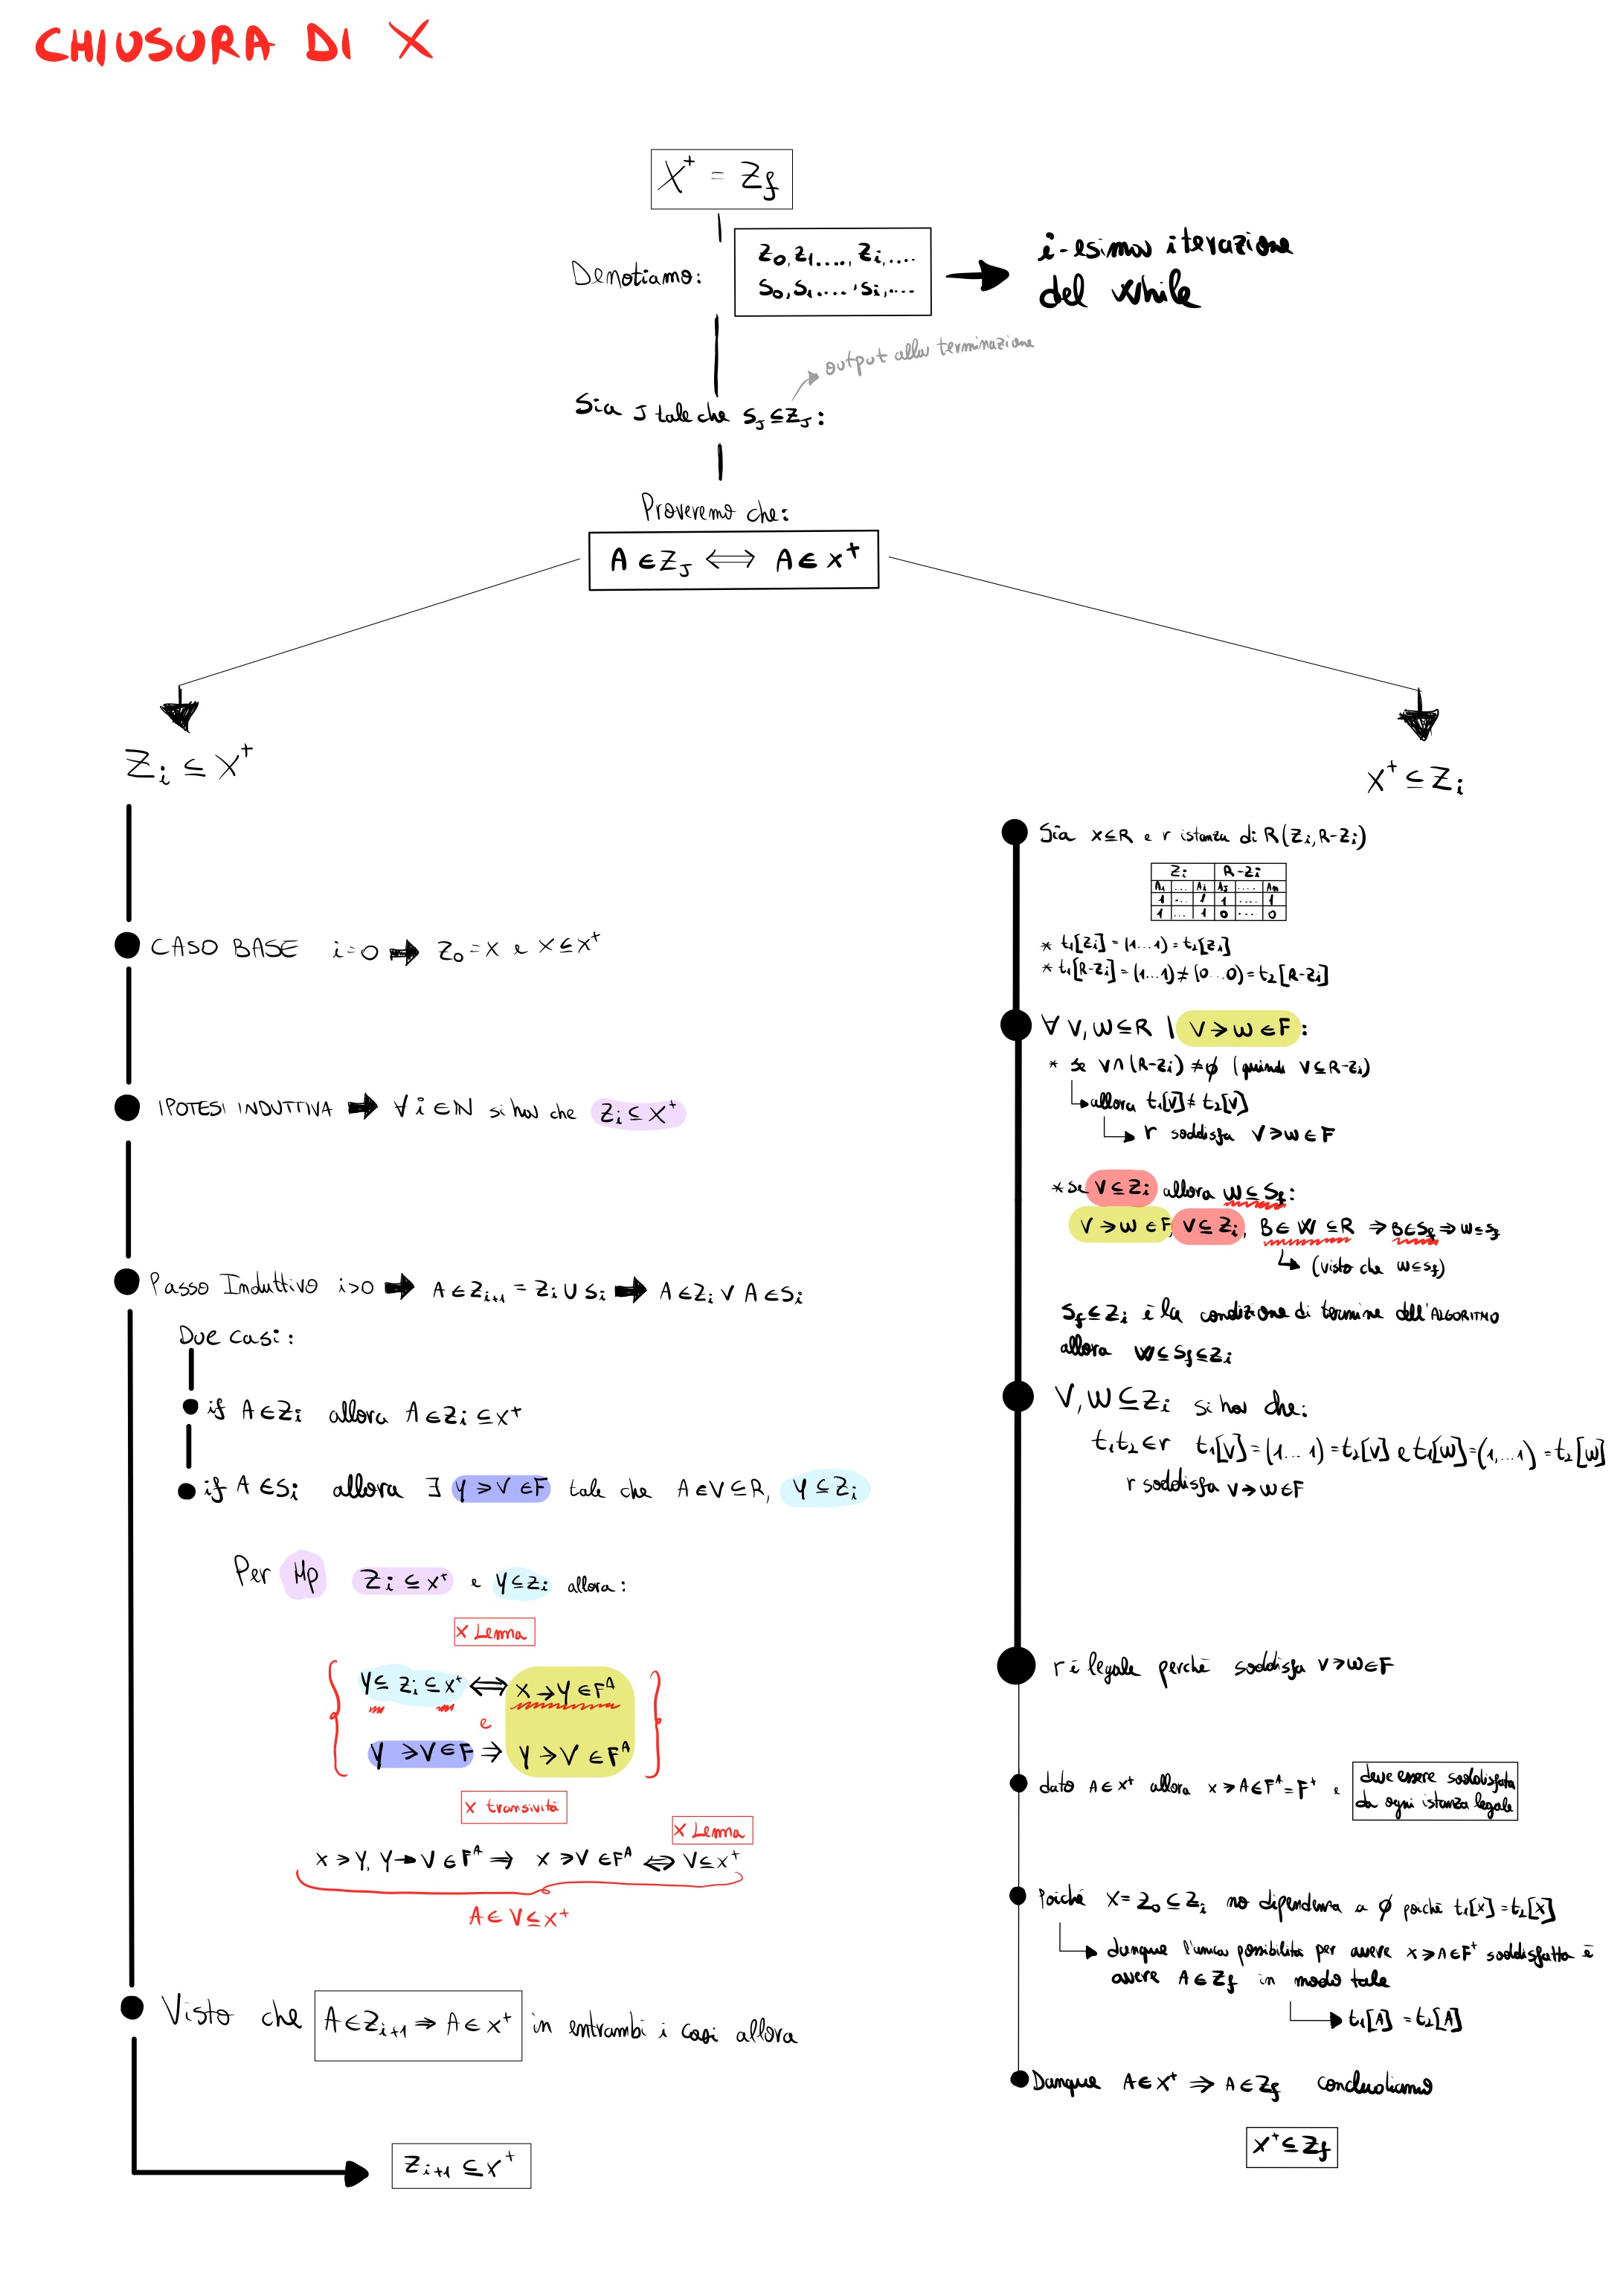 CHIUSURA DI X
X⁺ = Zf
Denotiamo:
Z₀, Z₁...., Zᵢ,....
S₀, S₁....,Sᵢ,....
i-esima iterazione
del while
output alla terminazione
Sia J tale che S_J ⊆ Z_J:
Proveremo che:
A ∈ Z_J ⟺ A ∈ X⁺
Zᵢ ⊆ X⁺
CASO BASE i=0 ➡ Z₀ = X e X ⊆ X⁺
IPOTESI INDUTTIVA ➡ ∀ i ∈ ℕ si ha che Zᵢ ⊆ X⁺
Passo Induttivo i>0 ➡ A ∈ Zᵢ₊₁ = Zᵢ ∪ Sᵢ ➡ A ∈ Zᵢ ∨ A ∈ Sᵢ
Due casi:
if A ∈ Zᵢ allora A ∈ Zᵢ ⊆ X⁺
if A ∈ Sᵢ allora ∃ Y → V ∈ F tale che A ∈ V ⊆ R, Y ⊆ Zᵢ
Per Hp Zᵢ ⊆ X⁺ e Y ⊆ Zᵢ allora:
X Lemma
Y ⊆ Zᵢ ⊆ X⁺ ⟺ X → Y ∈ Fᴬ
e
Y → V ∈ F ⇒ Y → V ∈ Fᴬ
X transività
X Lemma
X → Y, Y → V ∈ Fᴬ ⇒ X → V ∈ Fᴬ ⟺ V ⊆ X⁺
A ∈ V ⊆ X⁺
Visto che A ∈ Zᵢ₊₁ ⇒ A ∈ X⁺ in entrambi i casi allora
Zᵢ₊₁ ⊆ X⁺
X⁺ ⊆ Zᵢ
Sia X ⊆ R e r istanza di R(Zᵢ, R-Zᵢ)
Zᵢ R-Zᵢ
A₁ ... Aᵢ Aⱼ .... Aₙ
1 ... 1 1 .... 1
1 ... 1 0 .... 0
* t₁[Zᵢ] = (1...1) = t₂[Zᵢ]
* t₁[R-Zᵢ] = (1...1) ≠ (0...0) = t₂[R-Zᵢ]
∀ V, W ⊆ R | V → W ∈ F:
* se V ∩ (R-Zᵢ) ≠ ∅ (quindi V ⊆ R-Zᵢ)
allora t₁[V] ≠ t₂[V]
r soddisfa V → W ∈ F
* se V ⊆ Zᵢ allora W ⊆ Sf:
V → W ∈ F, V ⊆ Zᵢ, B ∈ W ⊆ R ⇒ B ∈ Sf ⇒ W ⊆ Sf
(visto che W ⊆ Sf)
Sf ⊆ Zᵢ è la condizione di termine dell'ALGORITMO
allora W ⊆ Sf ⊆ Zᵢ
V, W ⊆ Zᵢ si ha che:
t₁, t₂ ∈ r t₁[V] = (1...1) = t₂[V] e t₁[W] = (1,...1) = t₂[W]
r soddisfa V → W ∈ F
r è legale perchè soddisfa V → W ∈ F
dato A ∈ X⁺ allora X → A ∈ Fᴬ = F⁺ e
deve essere soddisfata
da ogni istanza legale
Poiché X = Z₀ ⊆ Zᵢ no dipendenza a ∅ poichè t₁[X] = t₂[X]
dunque l'unica possibilità per avere X → A ∈ F⁺ soddisfatta è
avere A ∈ Zf in modo tale
t₁[A] = t₂[A]
Dunque A ∈ X⁺ ⇒ A ∈ Zf concludiamo
X⁺ ⊆ Zf